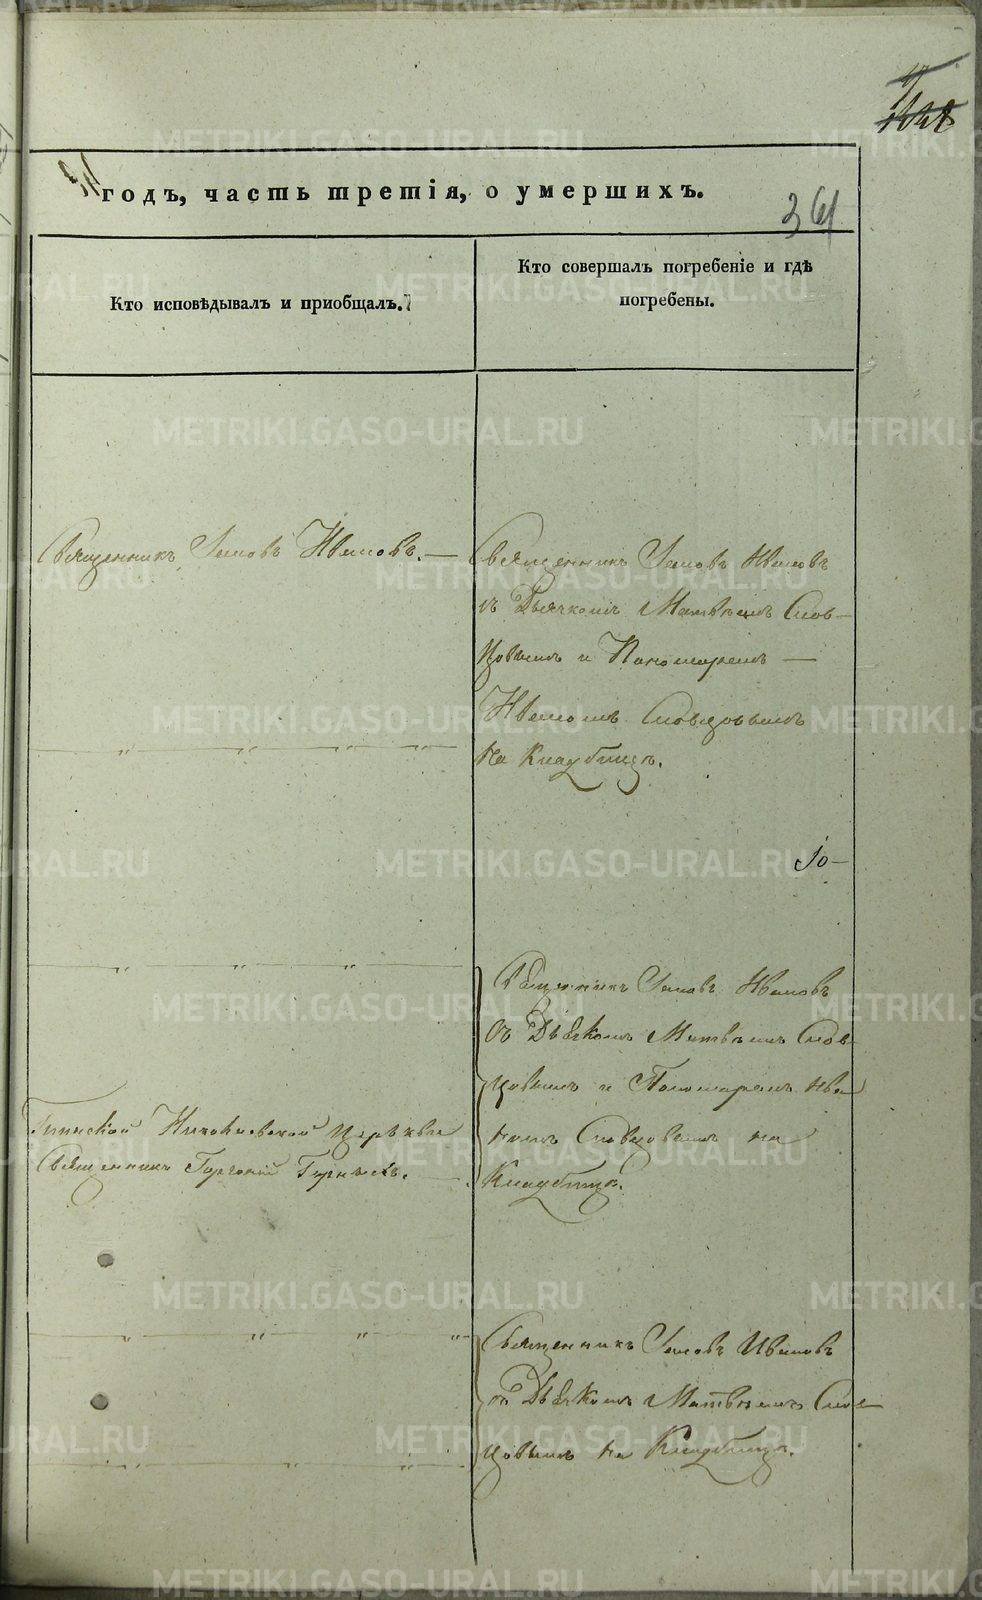 годъ, часть третія, о умершихъ.
361
Кто исповѣдывалъ и приобщалъ.
Кто совершалъ погребеніе и гдѣ
погребены.
Священникъ Іаковъ Ивановъ. —
Священникъ Іаковъ Ивановъ
съ Дьячкомъ Матвѣемъ Слов-
цовымъ и Пономаремъ —
Иваномъ Словцовымъ
на Кладбищѣ.
Священникъ Іаковъ Ивановъ
съ Дьячкомъ Матвѣемъ Слов-
цовымъ и Пономаремъ Ива
номъ Словцовымъ на
Кладбищѣ.
Николаевской Церкви
Священникъ Георгій
Священникъ Іаковъ Ивановъ
съ Дьячкомъ Матвѣемъ Слов-
цовымъ на Кладбищѣ.
METRIKI.GASO-URAL.RU